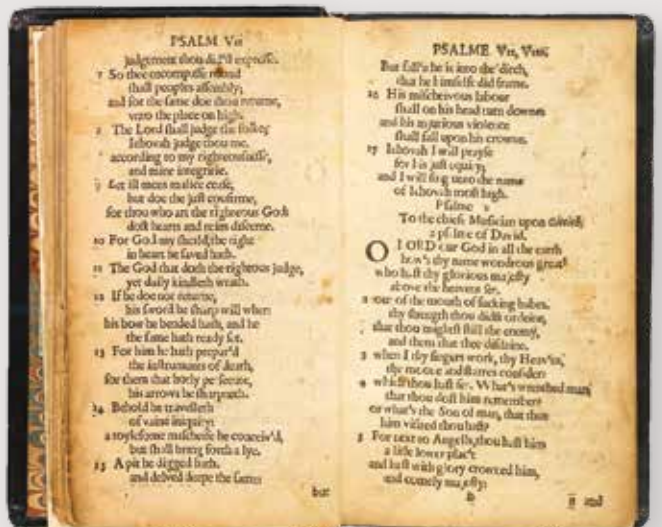 PSALM VII
judgement thou didst expresse.
7 So thee encompasse round
shall peoples assembly;
and for the same doe thou returne,
vnto the place on high.
8 The Lord shall judge the folkes
Iehovah judge thou me.
according to my righteousnesse,
and mine integritie.
9 Let ill mens malice cease,
but doe the just confirme,
for thou who art the righteous God
dost hearts and reins discerne.
10 For God my sheild, the right
in heart he saved hath.
11 The God that doth the righteous judge,
yet dayly kindleth wrath.
12 If he doe not returne,
his sword he sharp will whet:
his bow he bended hath, and he
the same hath ready set.
13 For him he hath prepar'd
the instruments of death,
for them that hotly persecute,
his arrows he sharpneth.
14 Behold he travelleth
of vaine iniquity:
a toylesome mischeife he conceiv'd,
but shall bring forth a lye.
15 A pit he digged hath,
and delved deepe the same:
but
PSALME VII, VIII.
But fall'n he is into the ditch,
that he himselfe did frame.
16 His mischeivous labour
shall on his head turn downe:
and his injurious violence
shall fall upon his crowne.
17 Iehovah I will prayse
for his just equity;
and I will sing unto the name
of Iehovah most high.
Psalme
To the chiefe Musician upon Gittith,
a psalme of David.
O LORD our God in all the earth
how's thy name wondrous great!
who hast thy glorious majesty
above the heavens set.
2 out of the mouth of sucking babes,
thy strength thou didst ordeine,
that thou mightst still the enemy,
and them that thee disdaine.
3 when I thy fingers work, thy Heav'ns,
the moone and starres consider
4 which thou hast set. What's wretched man
that thou dost him remember?
or what's the Son of man, that thus
him visited thou hast?
5 For next to Angells, thou hast him
a litle lower plac't,
and hast with glory crowned him,
and comely majesty:
and